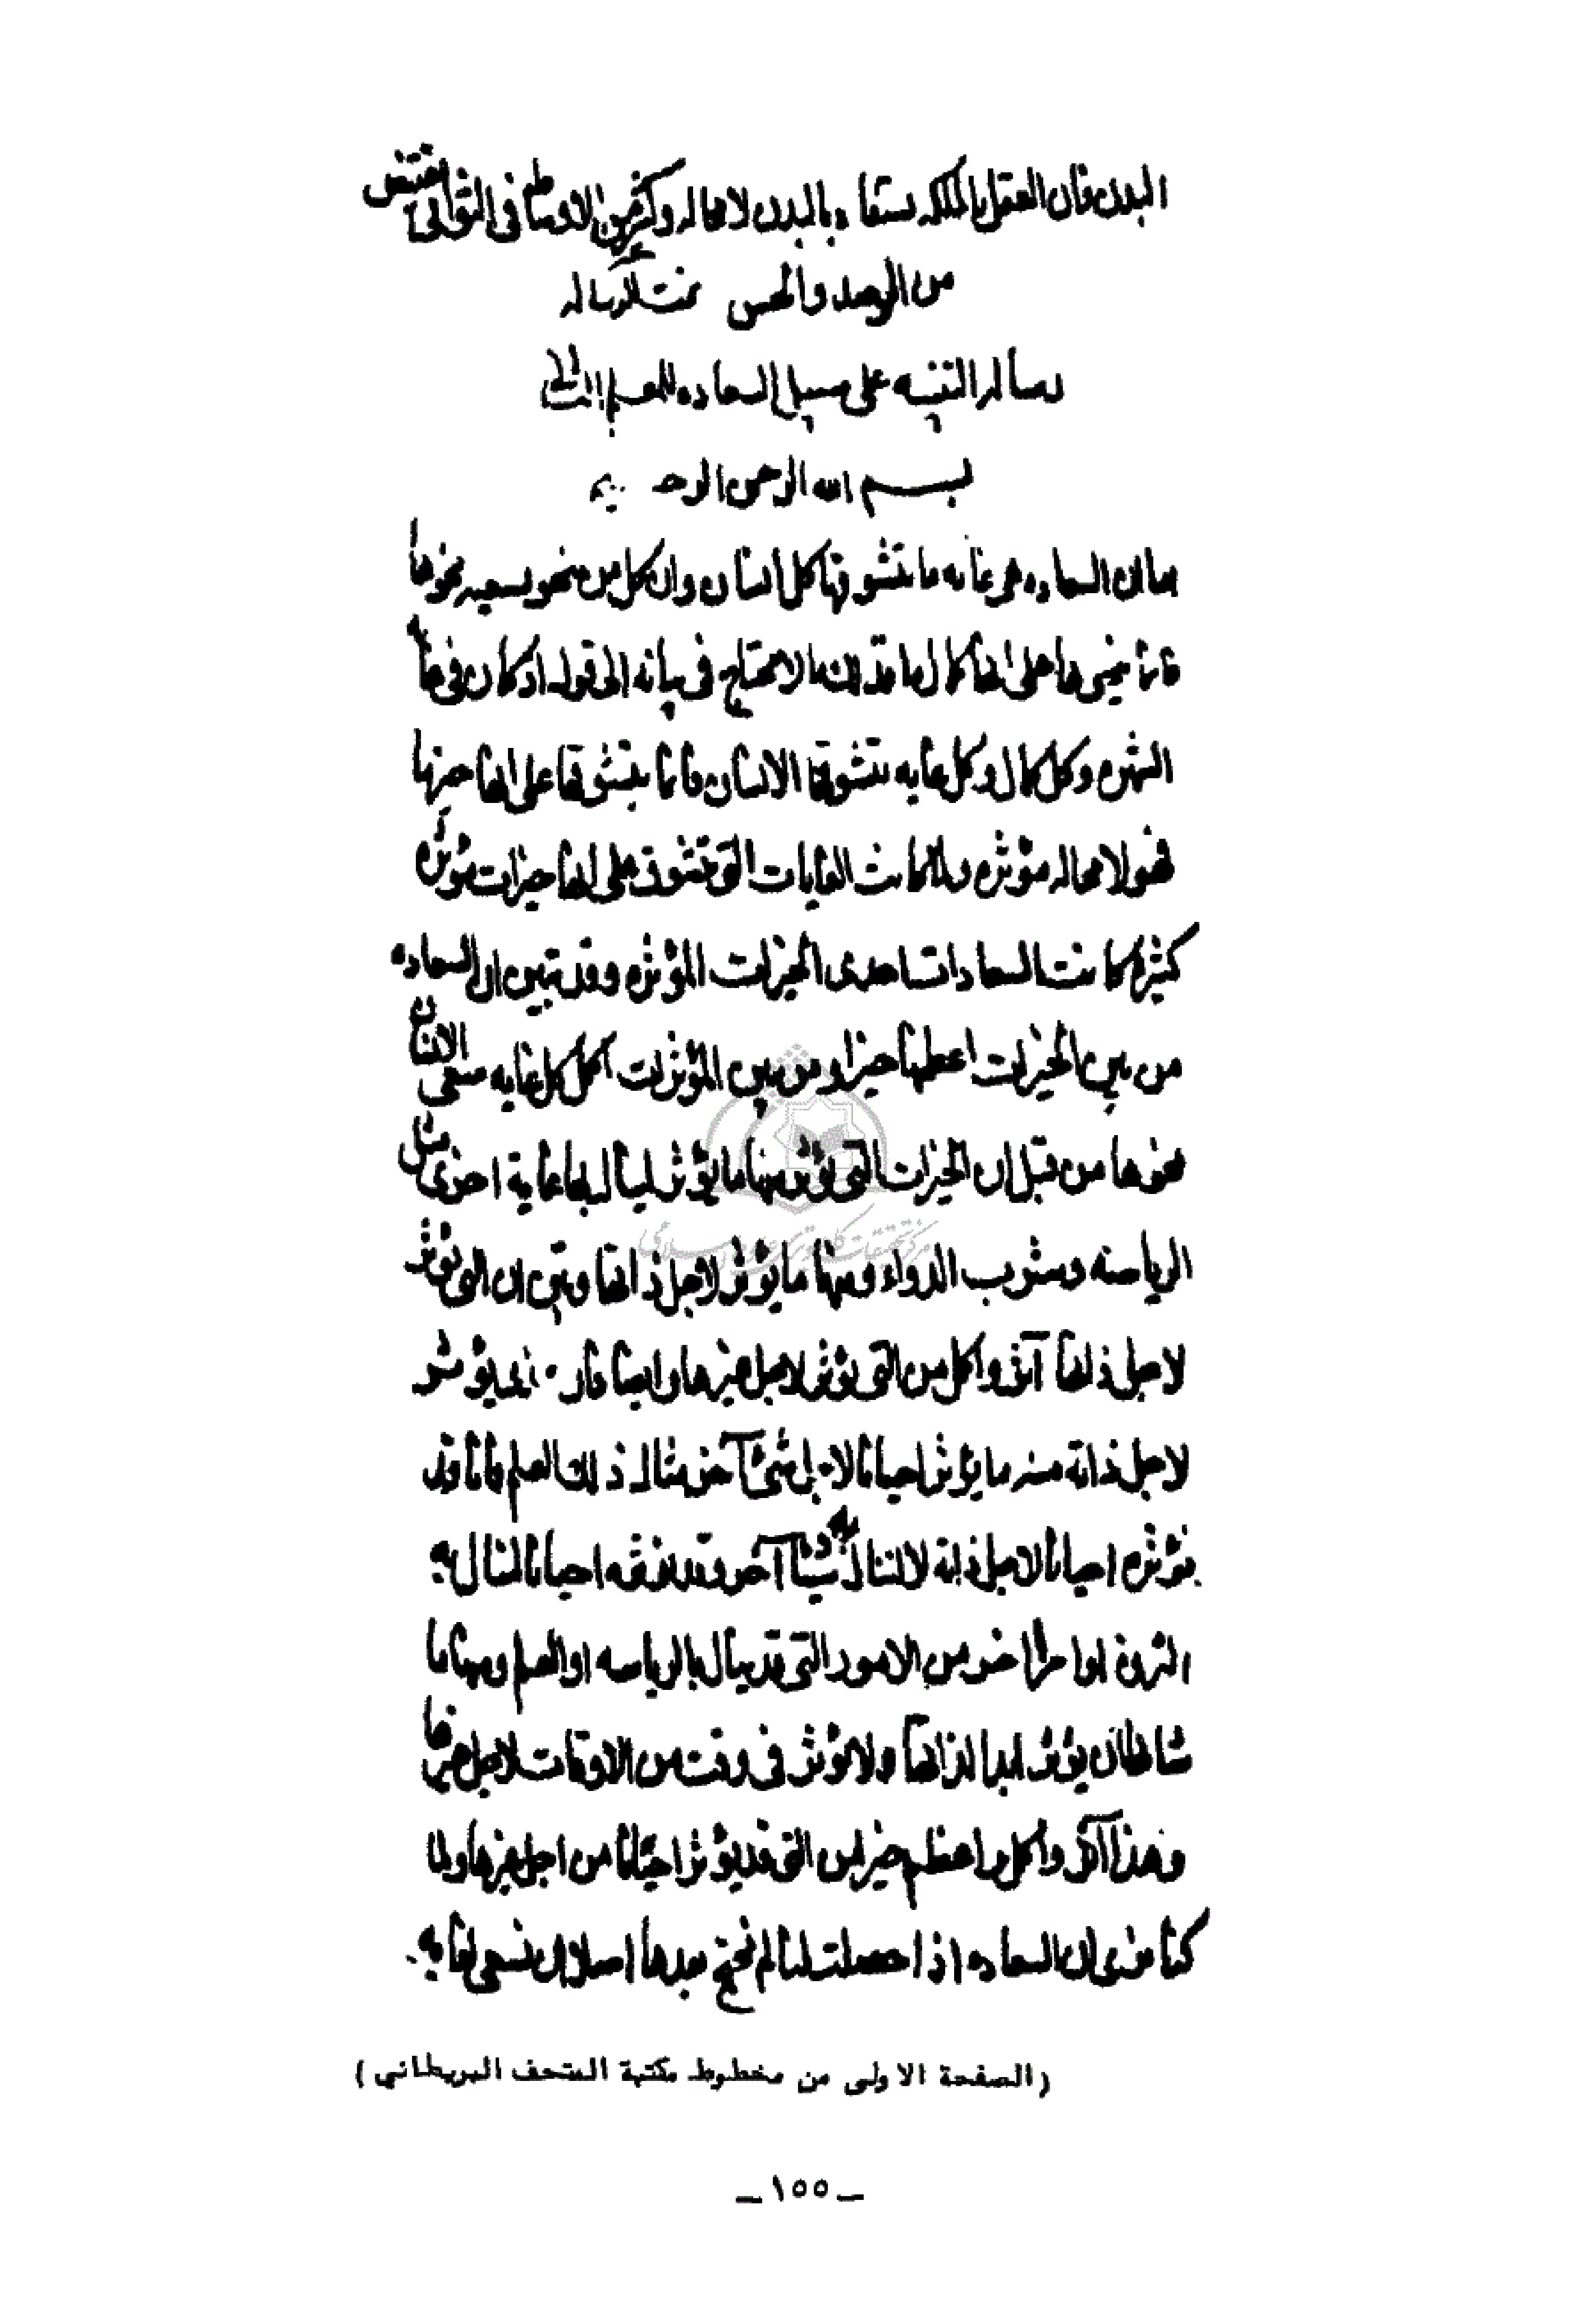 البدن فان العقل بالملكه يستفاد بالبدن لا محاله وكثير من الاوساط فى التوانى تقتنص
من الرصد والحس تمت الرساله
رساله التنبيه على سبيل السعاده للمعلم الثانى
بسم الله الرحمن الرحيم
اما ان السعاده هى غايه ما يتشوقها كل انسان وان كل من ينحو بسعيه نحوها
فانما ينحى ها على انها كمال ما فذلك ما لا يحتاج فى بيانه الى قول اذ كان فى غايه
الشهره وكل كمال وكل غايه يتشوقها الانسان فانما يتشوقها على انها خير ما
فهو لا محاله مؤثره ولما كانت الغايات التى تتشوق على انها خيرات مؤثره
كثيره كانت السعادات احدى الخيرات المؤثره وقد تبين ان السعاده
من بين الخيرات اعظمها خيرا ومن بين المؤثرات اكمل كل غايه سعى الانسان
نحوها من قبل ان الخيرات التى تؤثر منها ما يؤثر لينال بها غاية اخرى مثل
الرياضه وشرب الدواء ومنها ما يؤثر لاجل ذاتها وبين ان التى تؤثر
لاجل ذاتها آثر واكمل من التى تؤثر لاجل غيرها وايضا فان الذى يؤثر
لاجل ذاته منه ما يؤثر احيانا لاجل شئ آخر مثال ذلك العلم فاننا قد
نؤثره احيانا لاجل ذاته لا لننال به شيئا آخر وقد نؤثره احيانا لننال به
الثروه او امرا اخر من الامور التى قد ينال بالرياسه او العلم ومنها ما
شانها ان يؤثر ابدا لذاتها ولا تؤثر فى وقت من الاوقات لاجل غيرها
وهذا آثر واكمل واعظم خيرا من التى قد يؤثر احيانا من اجل غيرها ولما
كنا نرى ان السعاده اذا حصلت لنا لم نحتج بعدها اصلا ان نسعى لغايه
(الصفحة الاولى من مخطوط مكتبة المتحف البريطاني)
ـ ١٥٥ ـ